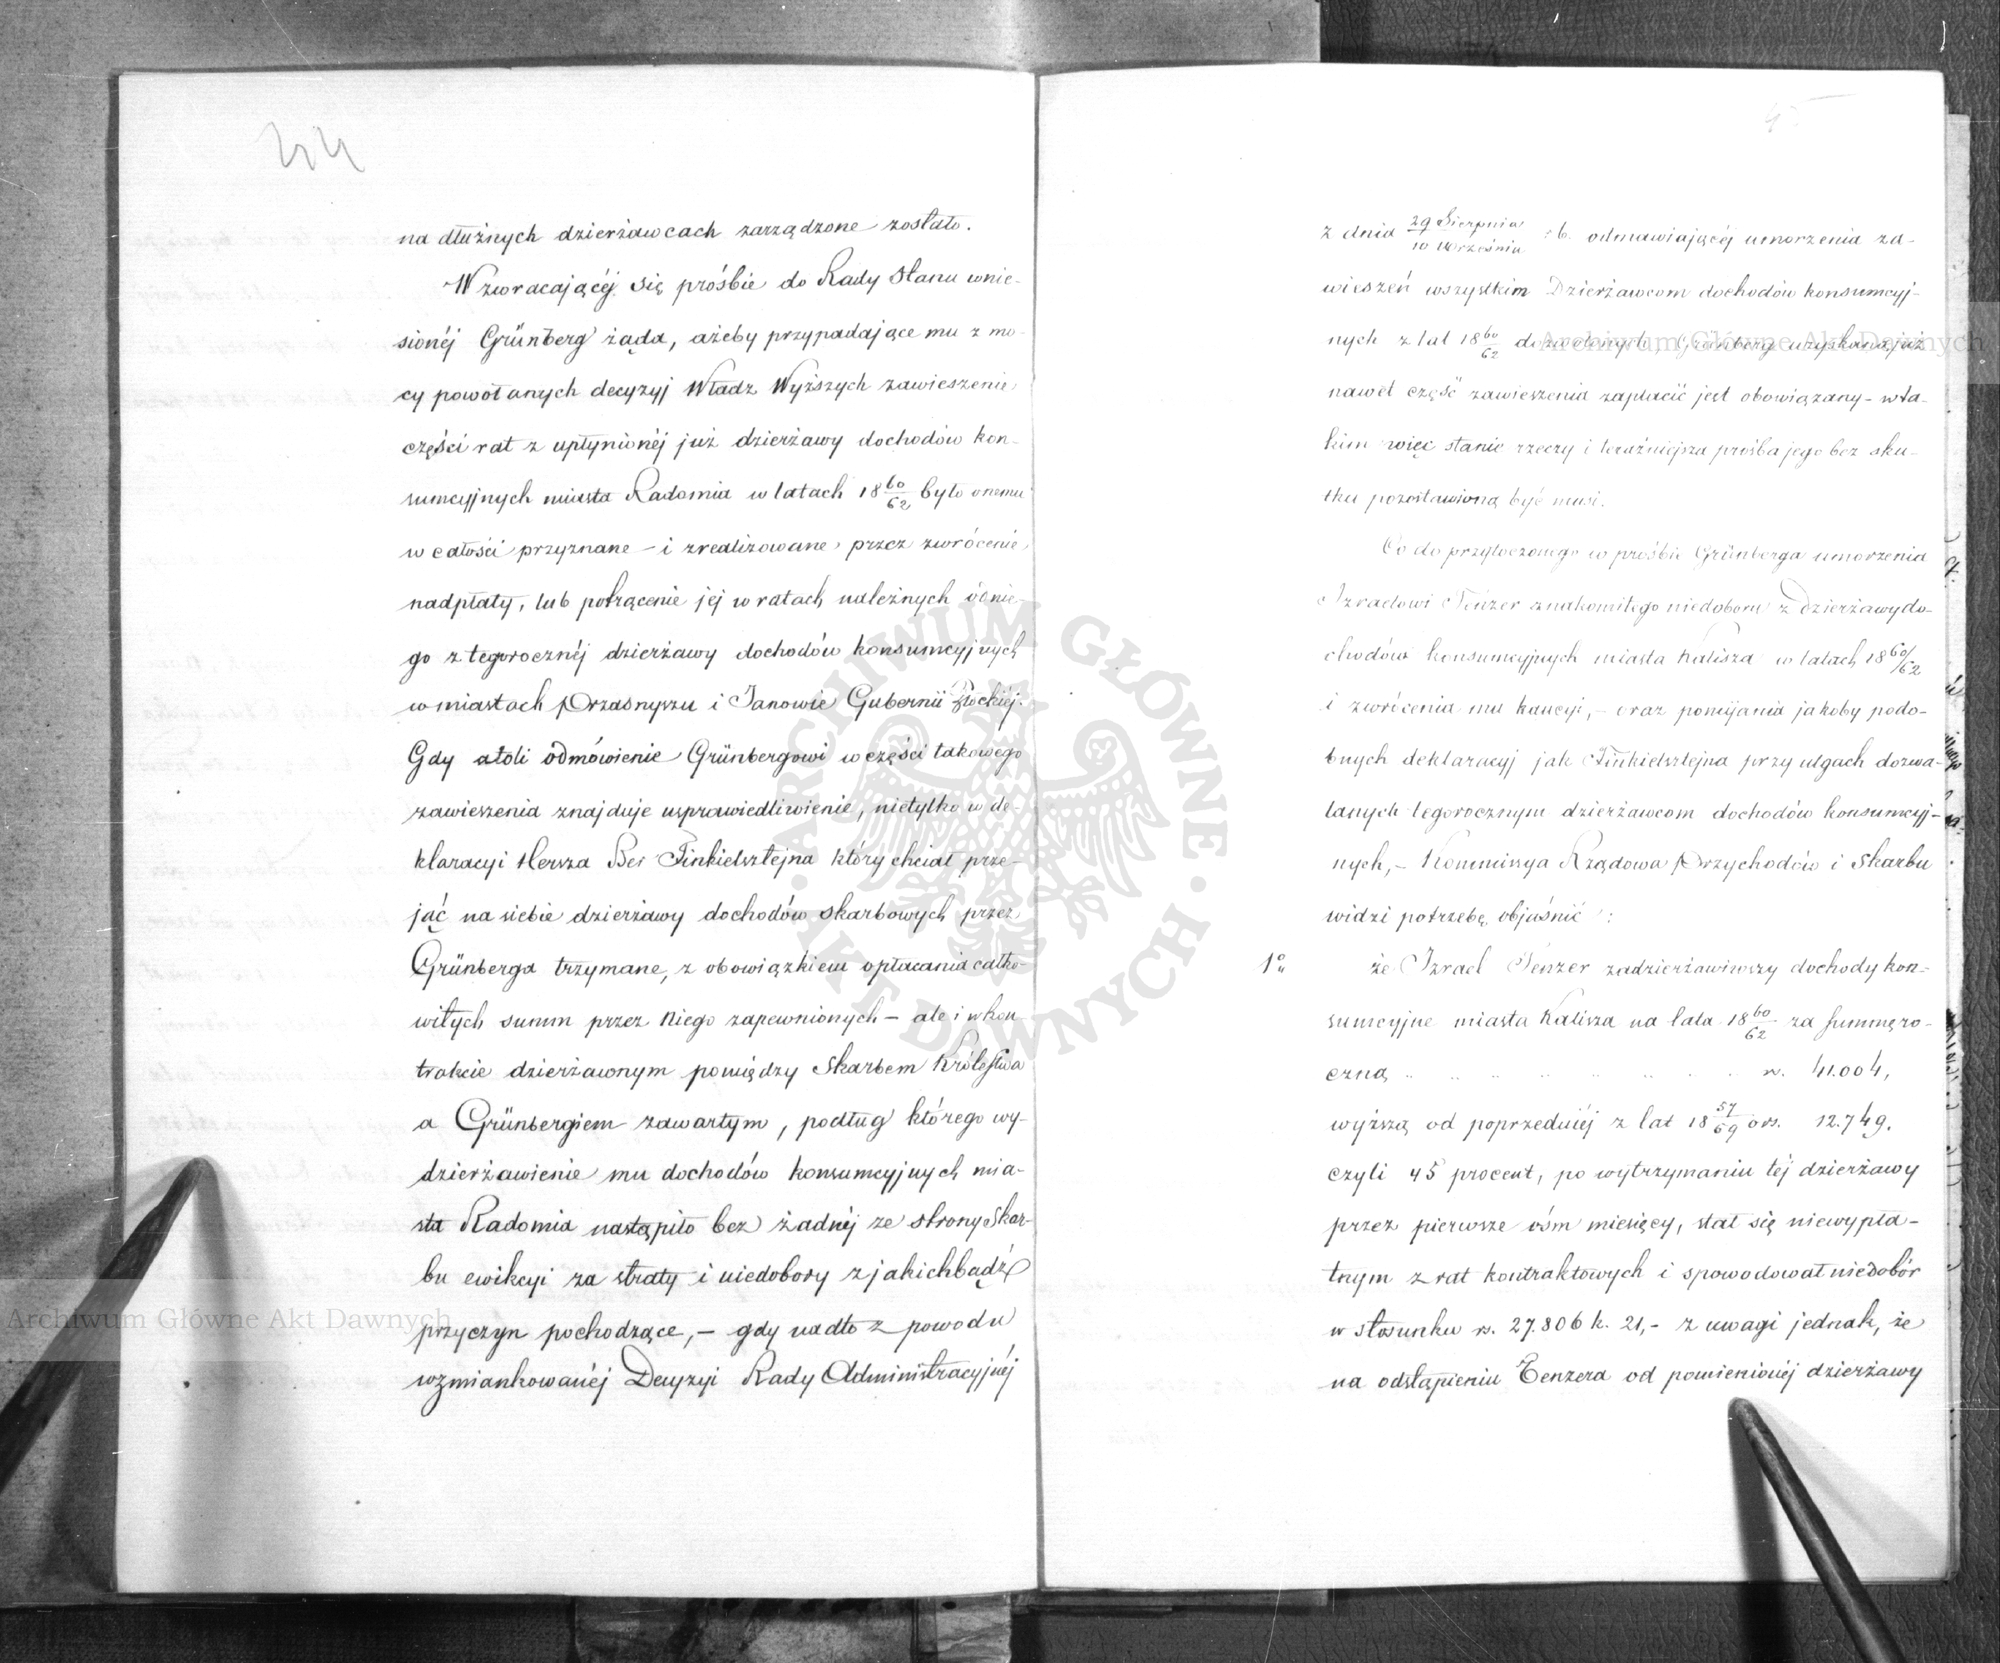 44
na dłużnych dzierżawcach zarządzone zostało.
W zwracającéj się prośbie do Rady Stanu wnie-
sionéj Grünberg żąda, ażeby przypadające mu z mo-
cy powołanych decyzyj Władz Wyższych zawieszenie
części rat z upłynionéj już dzierżawy dochodów kon-
sumcyjnych miasta Radomia w latach 18 60/62 było onemu
w całości przyznane – i zrealizowane przez zwrócenie
nadpłaty, lub potrącenie jej w ratach należnych od nie-
go z tegorocznéj dzierżawy dochodów konsumcyjnych
w miastach Przasnyszu i Janowie Gubernii Płockiéj.
Gdy atoli odmówienie Grünbergowi w części takowego
zawieszenia znajduje usprawiedliwienie, nietylko w de-
klaracyi Hersza Ber Finkielsztejna który chciał prze-
jąć na siebie dzierżawy dochodów skarbowych przez
Grünberga trzymane, z obowiązkiem opłacania całko-
witych summ przez niego zapewnionych – ale i w kon-
trakcie dzierżawnym pomiędzy Skarbem Królestwa
a Grünbergiem zawartym, podług którego wy-
dzierżawienie mu dochodów konsumcyjnych mia-
sta Radomia nastąpiło bez żadnéj ze strony Skar-
bu ewikcyi za straty i niedobory z jakichbądź
przyczyn pochodzące, – gdy nadto z powodu
wzmiankowanéj Decyzyi Rady Administracyjnéj
45
z dnia 29 Sierpnia/10 Września r. b. odmawiającéj umorzenia za-
wieszeń wszystkim Dzierżawcom dochodów konsumcyj-
nych z lat 18 60/62 dozwolonych, Grünberg uzyskaną już
nawet część zawieszenia zapłacić jest obowiązany – w ta-
kim więc stanie rzeczy i teraźniejsza prośba jego bez sku-
tku pozostawioną być musi.
Co do przytoczonego w prośbie Grünberga umorzenia
Izraelowi Tenzer znakomitego niedoboru z Dzierżawy do-
chodów konsumcyjnych miasta Kalisza w latach 18 60/62
i zwrócenia mu kaucyi, – oraz pomijania jakoby podo-
bnych deklaracyj jak Finkielsztejna przy ulgach dozwa-
lanych tegorocznym dzierżawcom dochodów konsumcyj-
nych, – Kommissya Rządowa Przychodów i Skarbu
widzi potrzebę objaśnić:
1o że Izrael Tenzer zadzierżawiwszy dochody kon-
sumcyjne miasta Kalisza na lata 18 60/62 za summę ro-
czną " " " " " " " rs. 41.004,
wyższą od poprzedniéj z lat 18 57/59 o rs. 12.749.
czyli 45 procent, po wytrzymaniu téj dzierżawy
przez pierwsze ośm miesięcy, stał się niewypła-
tnym z rat kontraktowych i spowodował niedobór
w stosunku rs. 27.806 k. 21, – z uwagi jednak, że
na odstąpieniu Tenzera od pomienionéj dzierżawy
Archiwum Główne Akt Dawnych
Archiwum Główne Akt Dawnych
ARCHIWUM GŁÓWNE AKT DAWNYCH